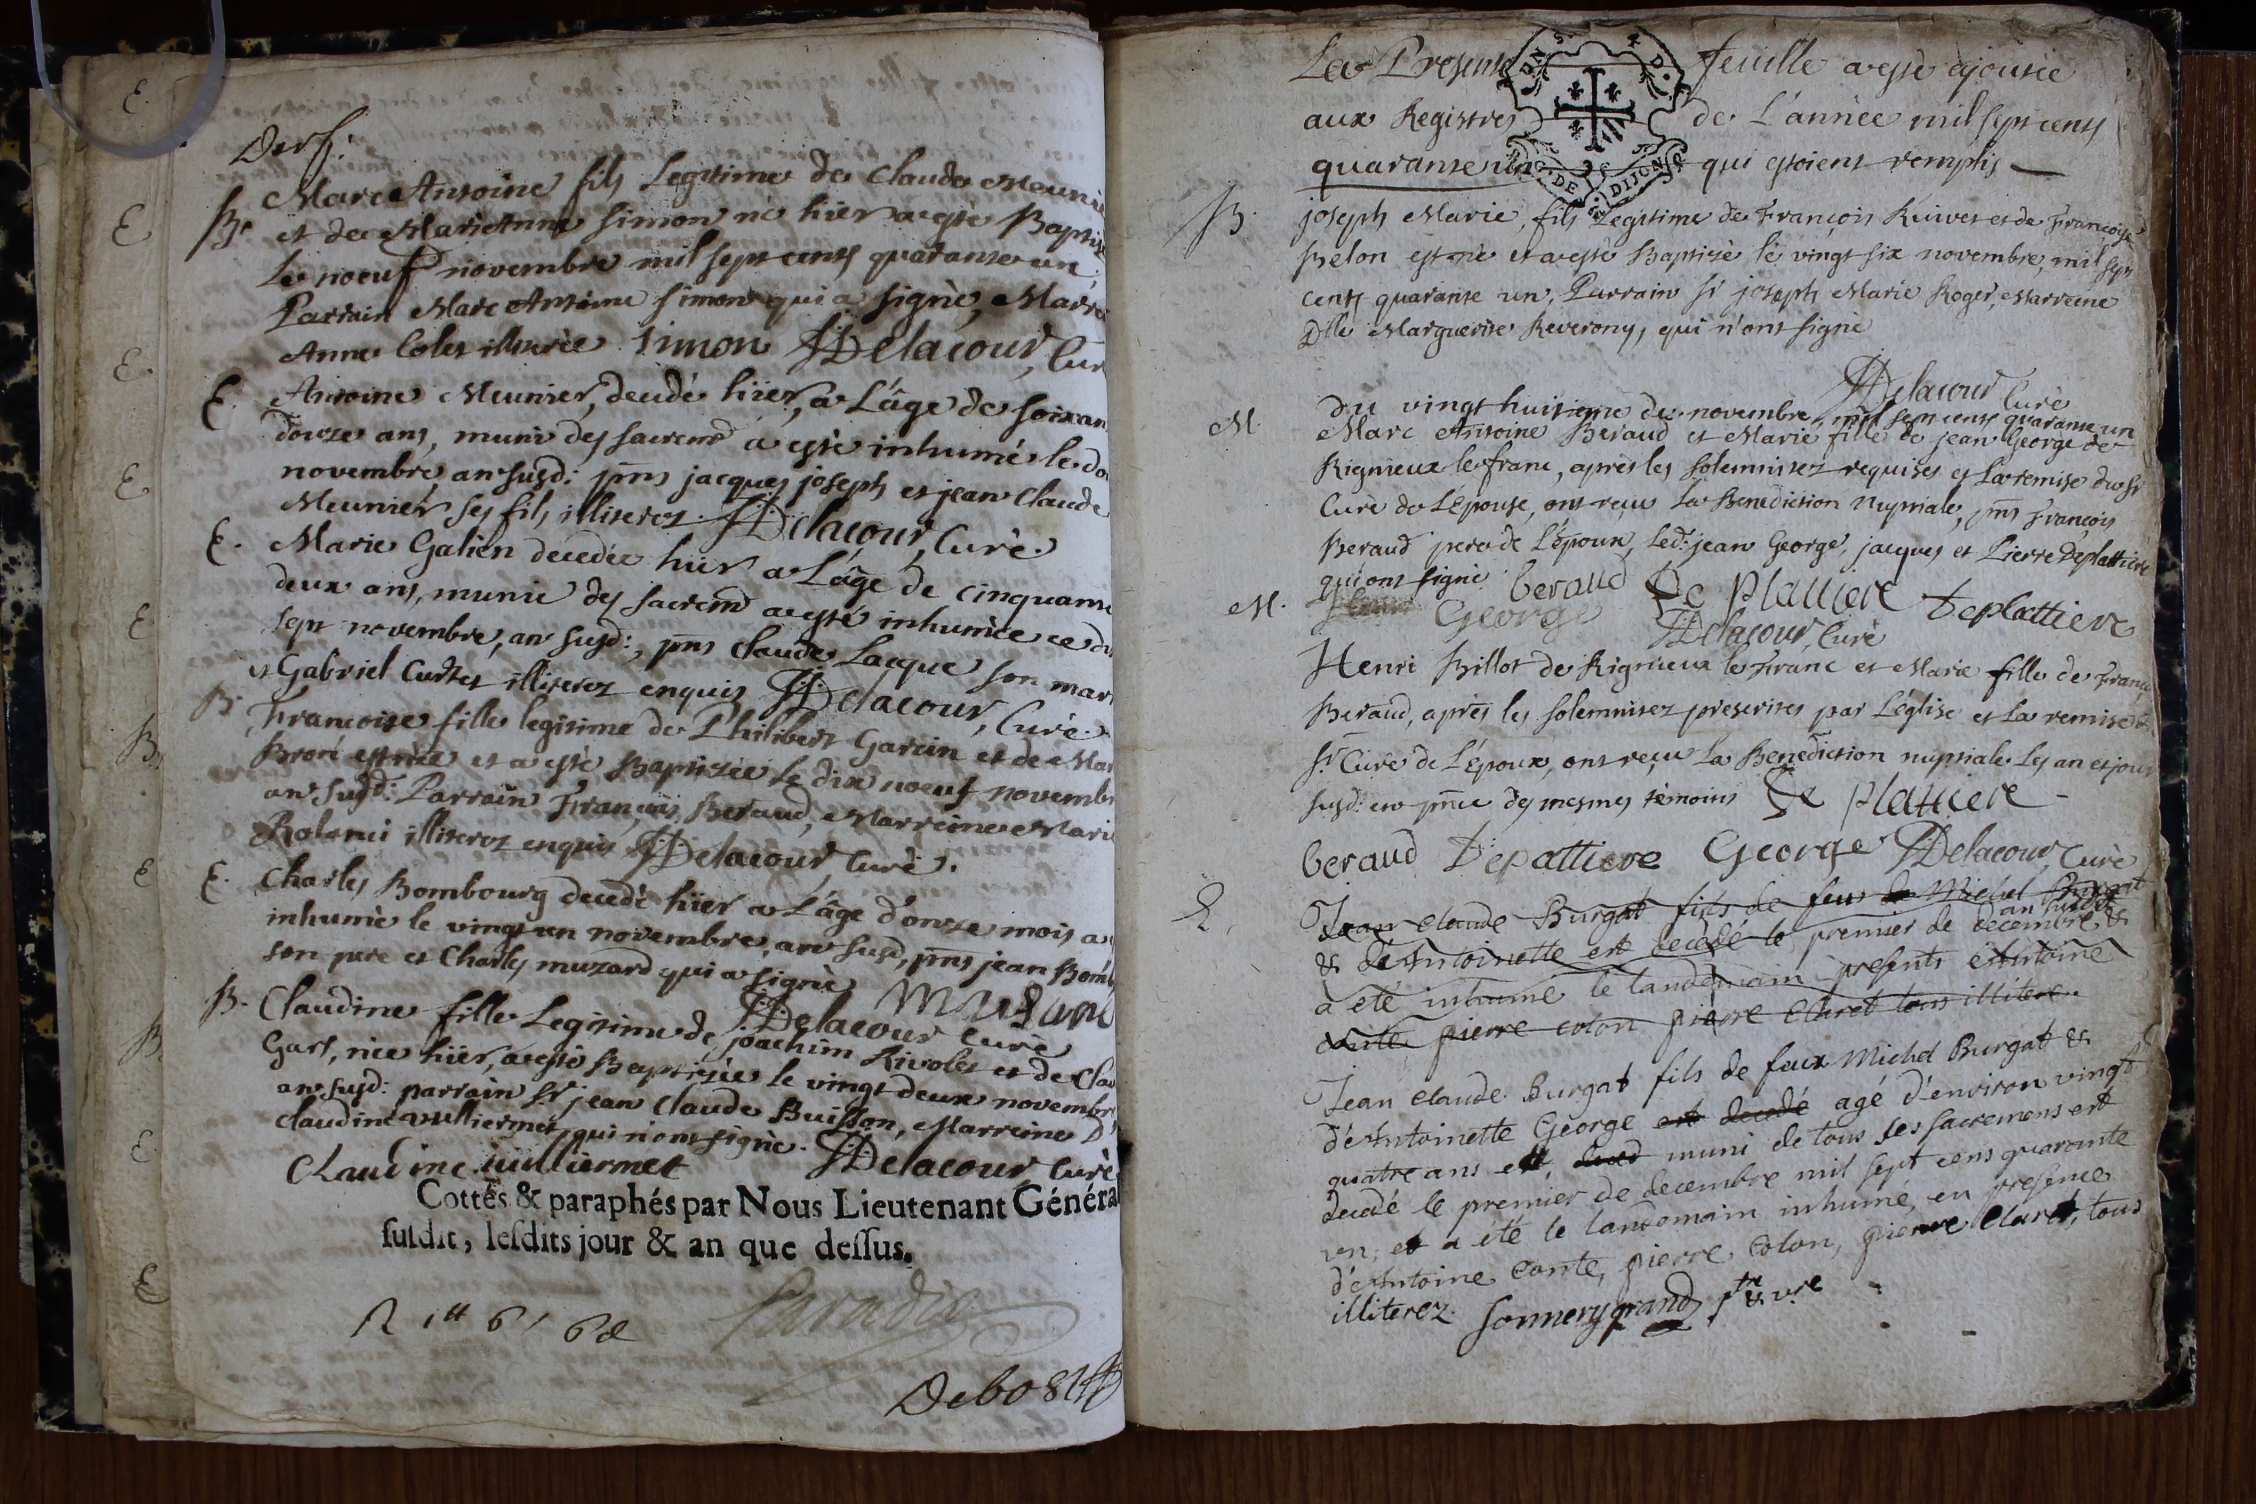 E.
E
E.
E
E
B.
E
B.
E.
E
Derf:
B. Marc Antoine fils Legitime de Claude Meunie
et de Marie Anne Simon né hier a esté Baptisé
Le noeuf novembre mil sept cents quarante un,
Parrain Marc Antoine Simon qui a signè, Marre
Anne Colet illiterée. Simon Delacour, Cur
E. Antoine Meunier, decedé hier, a L'âge de soixan
douze ans, muni des sacremts a esté inhumé le do
novembre an susd: pnts jacques joseph et jean Claude
Meunier ses fils illiterez. Delacour, Curè.
E. Marie Galien decedée hier a L'âge de cinquante
deux ans, munie des sacremts a esté inhumée ce di
sept novembre, an susd:, pnts Claude Lacque son mari
et Gabriel Curtet illiterez enquis Delacour, Curé.
B. Francoise fille legitime de Philibert Garcin et de Mar
Bron est née et a esté Baptizée Le dix noeuf novembr
an susd: Parrain François Beraud, Marreine Marie
illiterez enquis Delacour, Curé.
E. Charles Bombourg decedé hier a L'âge d'onze mois a
inhumé le vingt un novembre, an susd, pnts jean Bomb
son pere et Charles muzard qui a signè
Delacour Curé muzard
B. Claudine fille Legitime de joachim Rivolet et de Clau
Gart, née hier, a esté Baptizée le vingt deux novembre
an susd: parrain Sr jean Claude Buisson, Marreine D
Claudine vulliermet qui n'ont signè. Delacour Curè
Claudine vulliermet
Cottés & paraphés par Nous Lieutenant Généra
susdit, lesdits jour & an que dessus.
Paradis
Debost
La Presente feuille a esté ajoutée
aux Registres de L'année mil sept cents
quarante un qui estoient remplis
GN DE DIJON
B. joseph Marie, fils Legitime de François Ruivet et de Françoise
Belon est né et a esté Baptizé le vingt six novembre, mil sept
cents quarante un, Parrain Sr joseph Marie Roger, Marreine
Dlle Marguerite Reverony, qui n'ont signè
Delacour Curé
M. Du vingt huitieme de novembre, mil sept cents quarante un
Marc Antoine Beraud et Marie fille de jean George de
Rignieux le franc, après les solemnitez requises et La remise du Sr
Curé de L'épouse, ont reçu La Benediction Nuptiale, pnts François
Beraud pere de L'époux, Led: jean George, jacques et Pierre Deplattiere
qui ont signé. beraud De Plattiere
George Deplattiere
Delacour, Curé
M. Henri Billot de Rignieux le Franc et Marie fille de Franç
Beraud, après les solemnitez prescrites par L'église et La remise du
Sr Curé de L'époux, ont reçu La Benediction nuptiale Les an et jour
susd: en pnce des mesmes témoins De Plattiere
beraud Depattiere George Delacour Curè
E. Jean claude Burgat fils de feu Michel Burgat
an susdit
& d'Antoinette est decédé le premier de decembre &
a été inhumé le landemain presents Antoine
conte, pierre colon pierre Claret tous illitere.
Jean claude Burgat fils de feux Michel Burgat &
d'Antoinette George est decedé agé d'environ vingt
quatre ans et, muni de tous ses sacremens est
decedé le premier de decembre mil sept cens quarante
un, et a été le landemain inhumé, en presence
d'Antoine Conte, pierre Colon, pierre Claret, tous
illiterez. Sonnerygrand ptre & vre